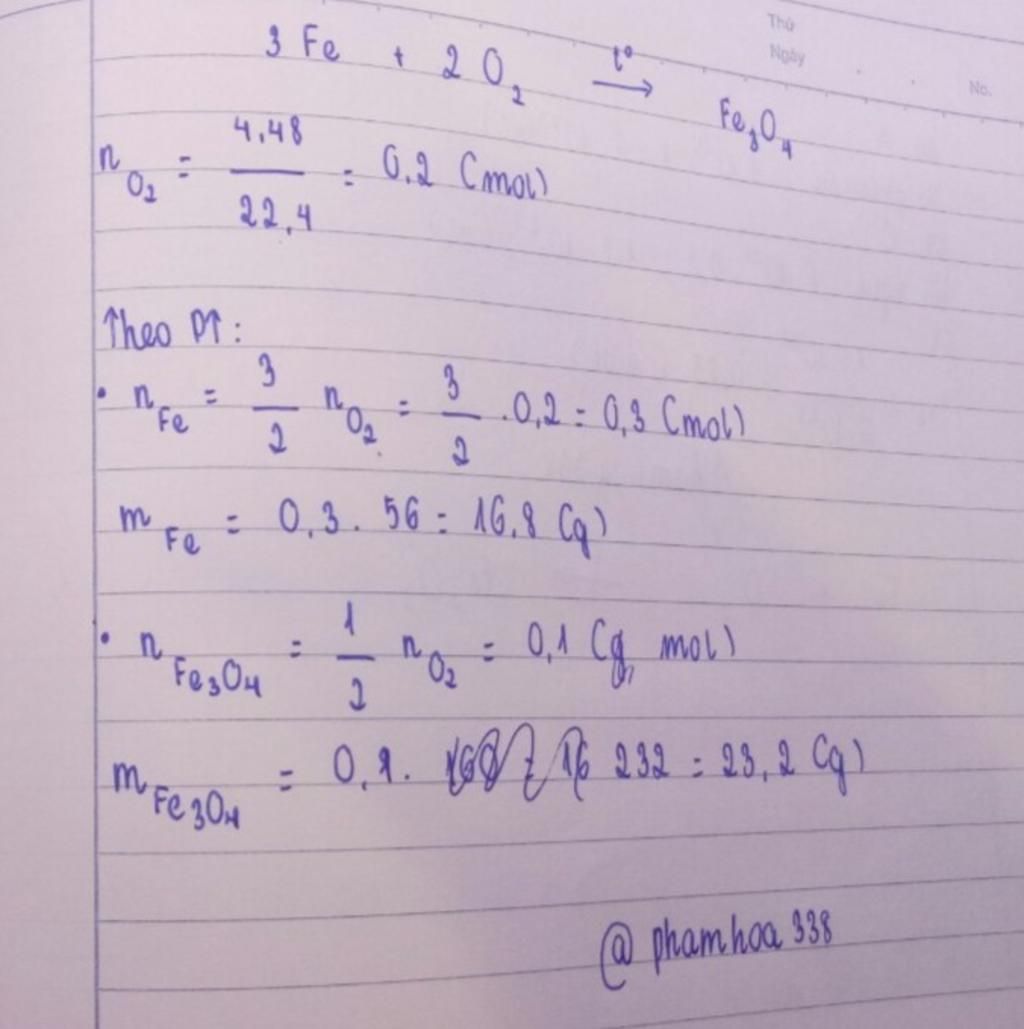 Thứ
Ngày
No.
3 Fe + 2 O₂ —t°→ Fe₃O₄
n O₂ = 4,48 / 22,4 = 0,2 (mol)
Theo PT:
• n Fe = 3/2 n O₂ = 3/2 . 0,2 = 0,3 (mol)
m Fe = 0,3 . 56 = 16,8 (g)
• n Fe₃O₄ = 1/2 n O₂ = 0,1 (mol)
m Fe₃O₄ = 0,1 . 232 = 23,2 (g)
@ phamhoa 338